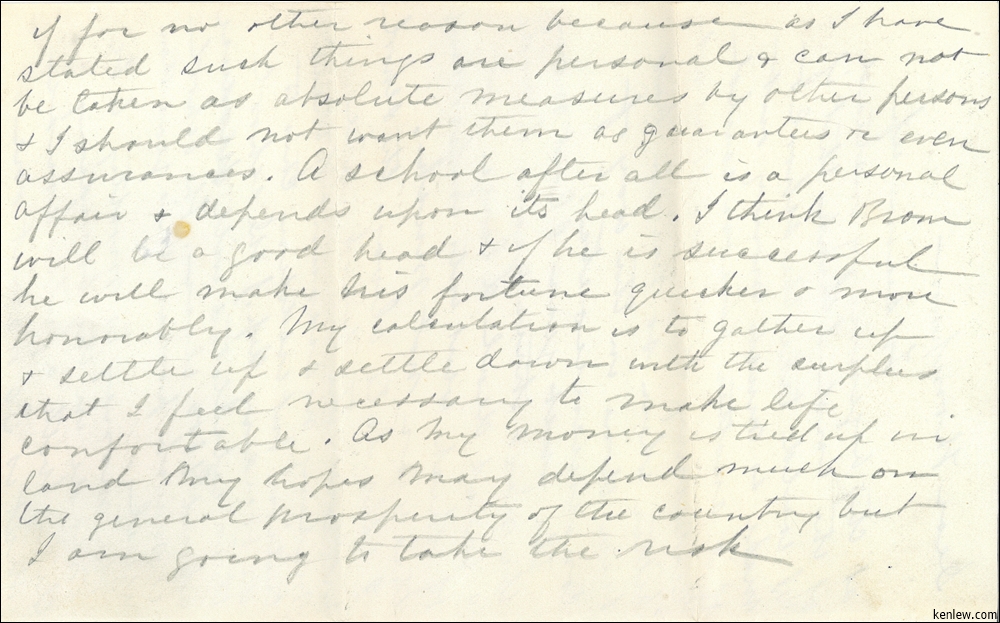 if for no other reason because as I have
stated such things are personal & can not
be taken as absolute measures by other persons
& I should not want them as guarantees or even
assurances. A school after all is a personal
affair & depends upon its head. I think Brown
will be a good head & if he is successful
he will make his fortune quicker & more
honorably. My calculation is to gather up
& settle up & settle down with the surplus
that I feel necessary to make life
comfortable. As my money is tied up in
land my hopes may depend much on
the general prosperity of the country but
I am going to take the risk
kenlew.com